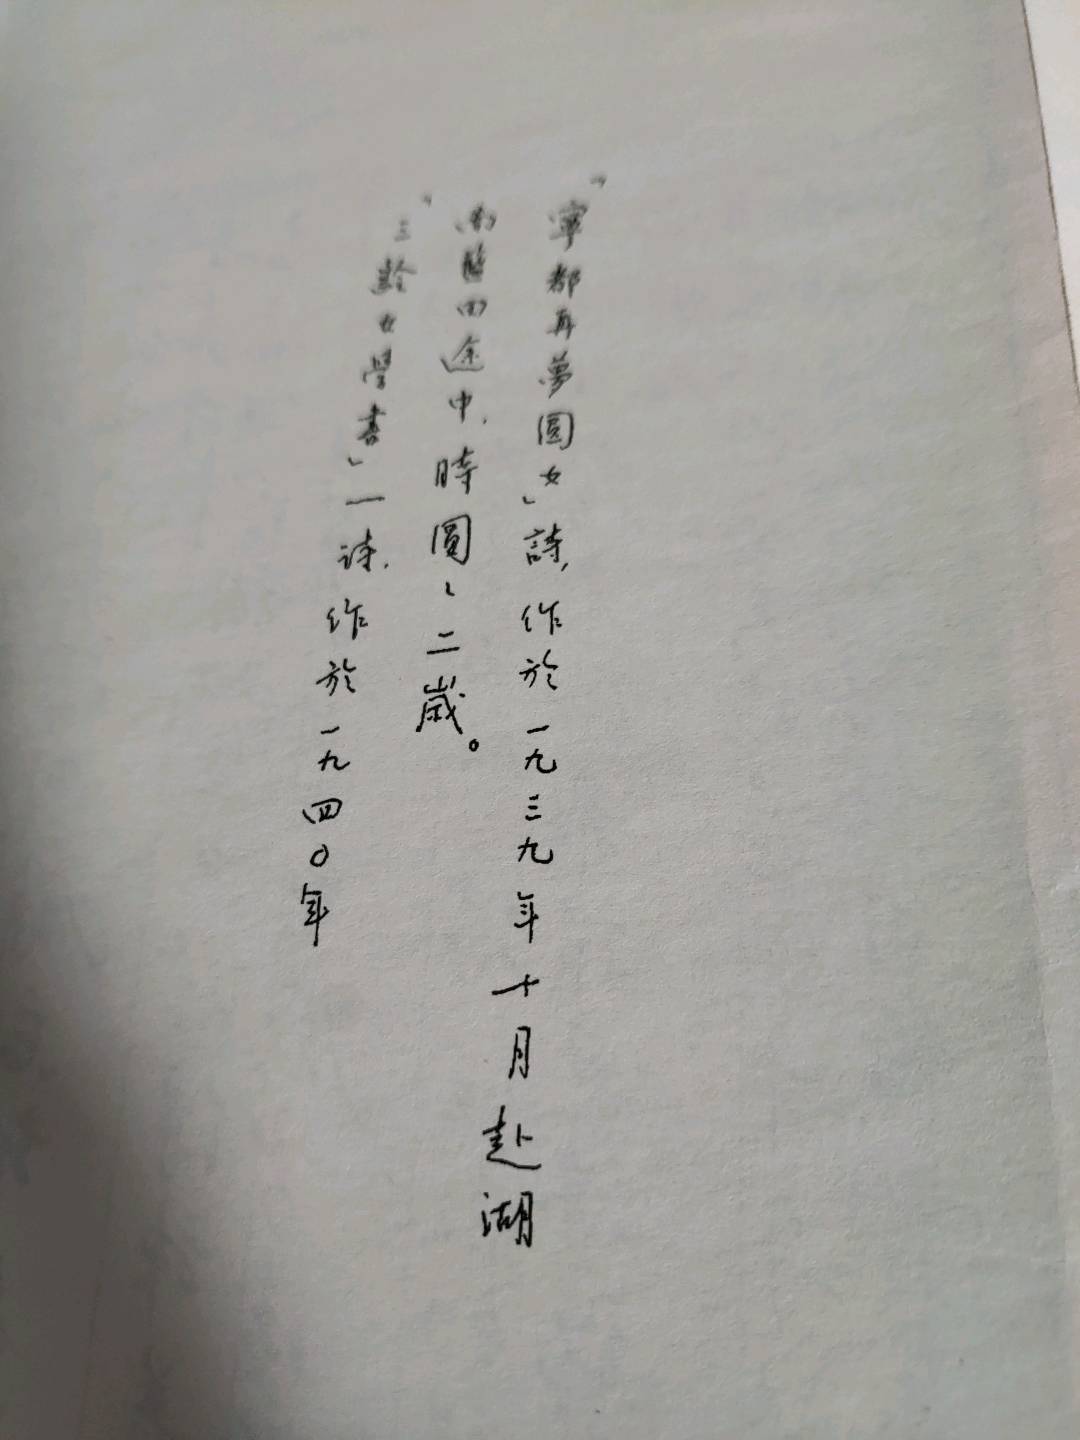 「寧都再夢圓女」詩，作於一九三九年十月赴湖
南藍田途中，時圓、二歲。
「三齡女學書」一诗，作於一九四〇年